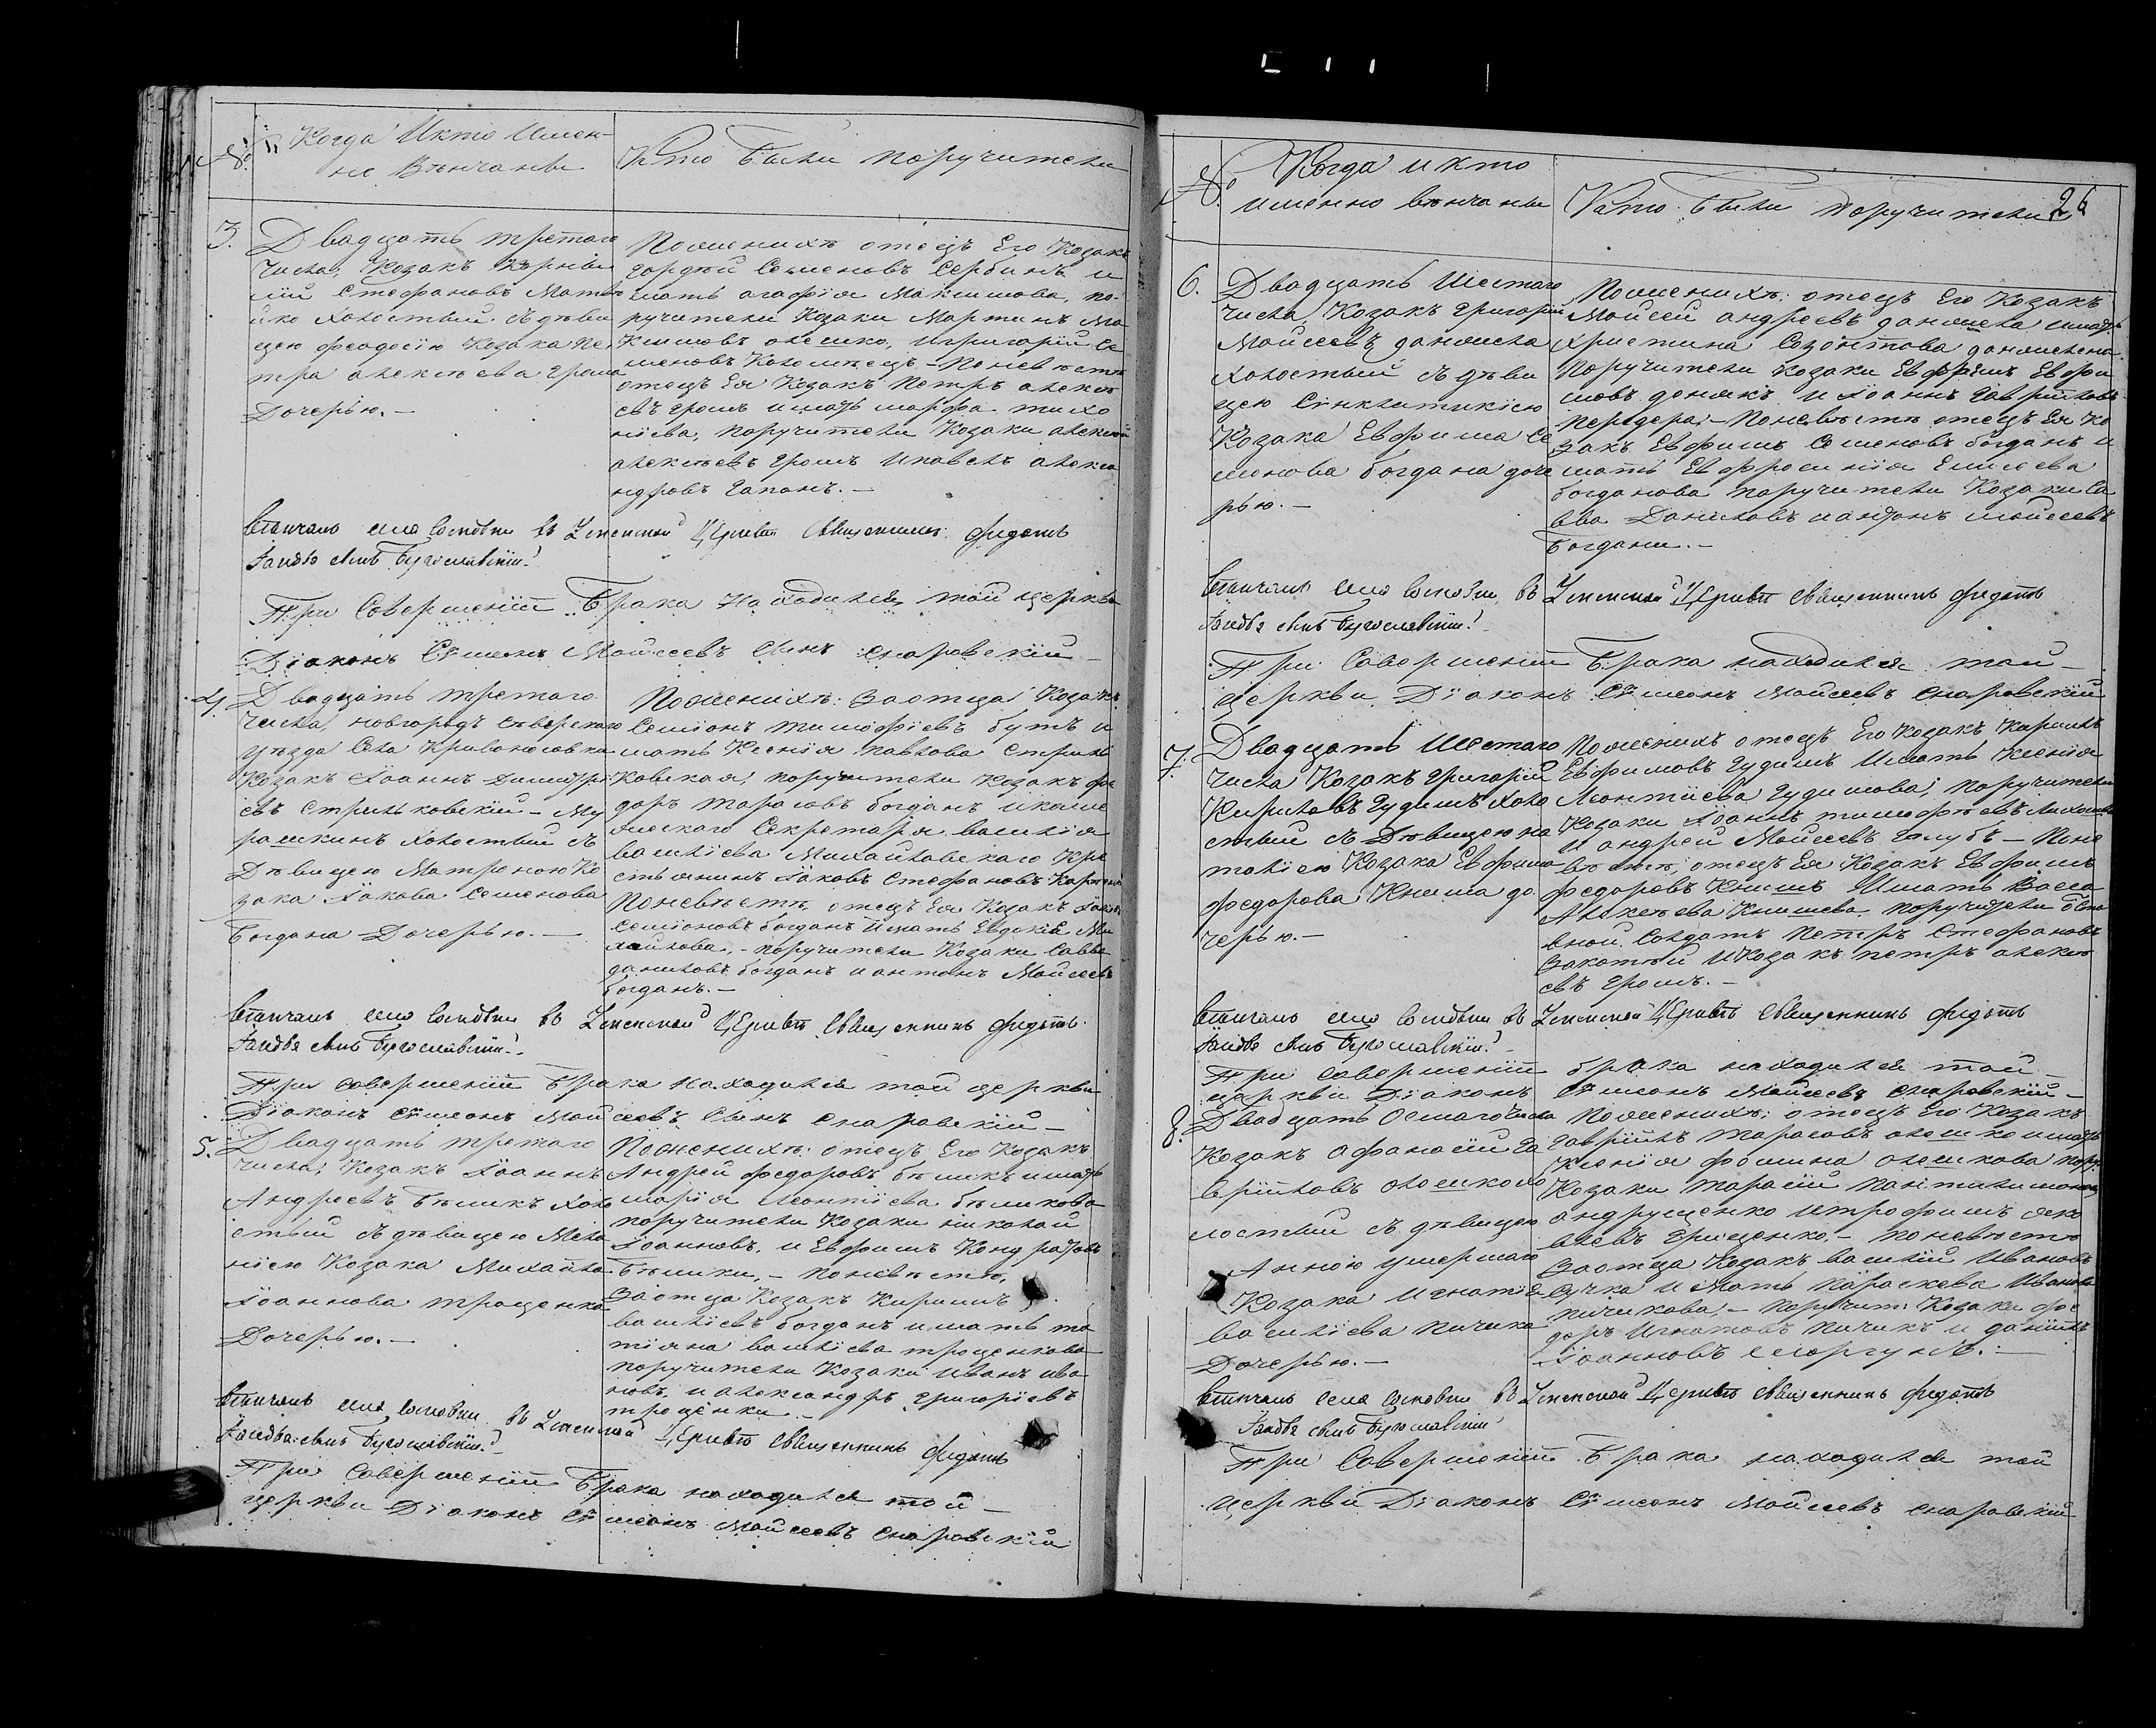 № Когда Икто Имен-
но Вѣнчаны
Кто были поручители
3. Двадцать третаго
числа, Козакъ Корнѣи
лій Стефановъ Матвѣ
йко холостый съ дѣви
цею феодосіею Козака Пе
тра алексѣева грома
Дочерью.-
По женихѣ отецъ Его Козакъ
гордѣй Семеновъ Сербинъ и
мать агафія Максимова, по
ручители Козаки Мартинъ Ма
ксимовъ олешко, Игригорій Се
меновъ Коломѣецъ - Поневѣстѣ
отецъ Ея Козакъ Петръ алексѣ
евъ громъ и мать марфа тихо
нова, поручители Козаки алексѣй
алексѣевъ громъ Ипавелъ алекса
ндровъ гапонъ.-
Вѣнчалъ въ Успенской Церкви Священникъ федотъ
сынъ Богославскій
При Совершеніи Брака Находился той церкви
Діаконъ Сѵмеонъ Мойсеевъ Сынъ
4. Двадцать третаго
числа, новгородъ сѣверскаго
уѣзда Села Кривоносовки
Козакъ Іоаннъ Димитрі
евъ Стрильковскій - Му
рашкинъ холостый съ
Дѣвицею Матроною Ко
зака Іакова Семенова
Богдана Дочерью.-
Поженихѣ: Заотца Козакъ
Семіонъ тимофѣевъ бутъ и
мать Ксенія Павлова Стриль
ковская; поручители Козакъ фе
доръ тарасовъ богданъ
Секретаря василія
василіева Михайловскаго Кре
стьянинъ Іаковъ Стефановъ
Поневѣстѣ отецъ Ея Козакъ Іаковъ
Семіоновъ богданъ Имать Евдокія Ми
хайлова,- поручители Козаки Савва
даниловъ богданъ и антонъ Мойсеевъ
богданъ.-
Вѣнчалъ въ Успенской Церкви Священникъ федотъ
сынъ Богославскій
При совершеніи Брака находился той церкви
Діаконъ Сѵмеонъ Мойсеевъ Сынъ
5. Двадцать третаго
числа; Козакъ Іоаннъ
Андреевъ Бѣликъ холо
стый съ дѣвицею Мела
ніею Козака Михайла
Іоаннова троценка
Дочерью.-
Поженихѣ: отецъ Его Козакъ
Андрей федоровъ бѣликъ имать
марія Леонтіева бѣликова
поручители Козаки николай
Іоанновъ, и Евфимъ Кондратовъ
Бѣлики,- поневѣстѣ,
Заотца Козакъ Кирилъ
василіевъ богданъ имать та
тіяна василіева троценкова
поручители Козаки Иванъ ива
новъ и александръ григоріевъ
троценки
Вѣнчалъ въ Успенской Церкви Священникъ федотъ
сынъ Богославскій
При Совершеніи Брака находился той-
церкви Діаконъ Сѵмеонъ Мойсеевъ
26
№ Когда и кто
именно вѣнчаны
Кто были Поручители
6. Двадцать Шестаго
числа Козакъ григорій
Мойсеевъ
холостый съ дѣви
цею Синклитикіею
Козака Евфима Се
менова богдана доче
рью.-
Поженихѣ: отецъ Его Козакъ
Мойсей андреевъ имать
христина Созонтова
Поручители Козаки Евфимъ Евфи
мовъ и Іоаннъ Гавриловъ
передера,- Поневѣстѣ отецъ Ея Ко
закъ Евфимъ Семеновъ богданъ и
мать Евфросинія Елисеева
богданова поручители Козаки Са
вва Даниловъ иантонъ мойсеевъ
Богданы.-
Вѣнчалъ въ Успенской Церкви священникъ федотъ
сынъ Богославскій
При Совершеніи Брака находился той-
церкви Діаконъ Сѵмеонъ Мойсеевъ
7. Двадцать Шестаго
числа Козакъ григорій
Кириловъ гудимъ холо
стый съ Дѣвицею на
таліею Козака Евфима
федорова Книша до
черью.-
Поженихѣ отецъ Его Козакъ Кирилъ
Евфимовъ гудимъ Имать Ксенія
Леонтіева гудимова; поручители
Козаки Іоаннъ тимофѣевъ
и андрей Мойсеевъ голубъ - Поне
вѣстѣ, отецъ Ея Козакъ Евфимъ
федоровъ Книшъ Имать Васса
Алексѣева Книшева поручители
Солдатъ Петръ Стефановъ
Закотній Икозакъ петръ алексѣ
евъ громъ.-
Вѣнчалъ въ Успенской Церкви священникъ федотъ
сынъ Богославскій
При Совершеніи брака находился той-
церкви Діаконъ Сѵмеонъ Мойсеевъ
8. Двадцать Осмаго числа
Козакъ Афанасій Га
вріиловъ олешко хо
лостый съ дѣвицею
Анною умершаго
Козака Игнатія
василіева пичика
Дочерью.-
Поженихѣ; отецъ Его Козакъ
гавріилъ тарасовъ олешко имать
Ксенія фомина олешкова пору.
Козаки тарасій
андрущенко итрофимъ яко
влевъ грищенко,- поневѣстѣ
Заотца Козакъ василій Ивановъ
Сучка и мать параскева Иванова
пичикова,- поручит: Козаки фе
доръ Игнатовъ Пичикъ и даніилъ
Іоанновъ
Вѣнчалъ въ Успенской Церкви священникъ федотъ
сынъ Богославскій
При Совершеніи Брака находился той
церкви Діаконъ Сѵмеонъ Мойсеевъ